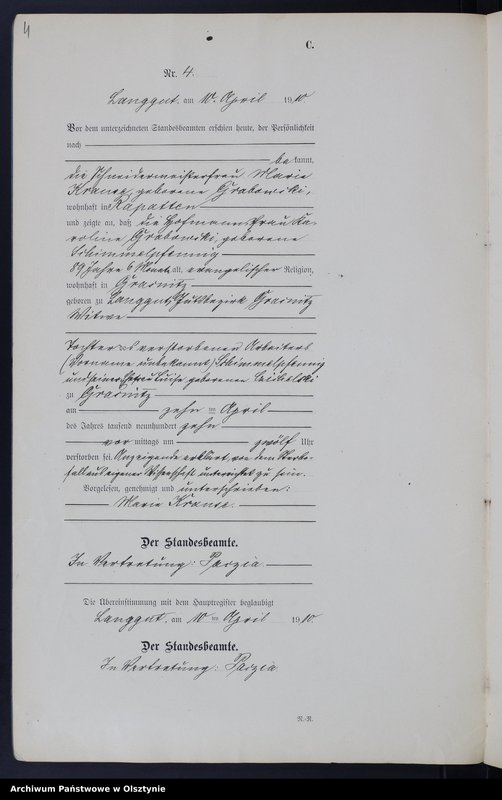 4
C.
Nr. 4.
Langgut, am 10. April 1910.
Vor dem unterzeichneten Standesbeamten erschien heute, der Persönlichkeit
nach
bekannt,
die Schneidermeisterfrau Marie
Krause, geborene Grabowski,
wohnhaft in Rapatten
und zeigte an, daß die Hofmannsfrau Ka-
roline Grabowski, geborene
Schimmelpfennig
89 Jahre 6 Monat alt, evangelischer Religion,
wohnhaft in Grasnitz
geboren zu Langgut, Gutsbezirk Grasnitz
Witwe
Tochter des verstorbenen Arbeiters
(Vorname unbekannt) Schimmelpfennig
und seiner Ehefrau Luise geborenen
zu Grasnitz
am zehn ten April
des Jahres tausend neunhundert zehn
vor mittags um zwölf Uhr
verstorben sei. Anzeigende erklärt, von dem Sterbe-
falle aus eigener Wissenschaft unterrichtet zu sein.
Vorgelesen, genehmigt und unterschrieben:
Marie Krause.
Der Standesbeamte.
In Vertretung: Parzia
Die Übereinstimmung mit dem Hauptregister beglaubigt
Langgut, am 10 ten April 1910.
Der Standesbeamte.
In Vertretung: Parzia
N.-R.
Archiwum Państwowe w Olsztynie